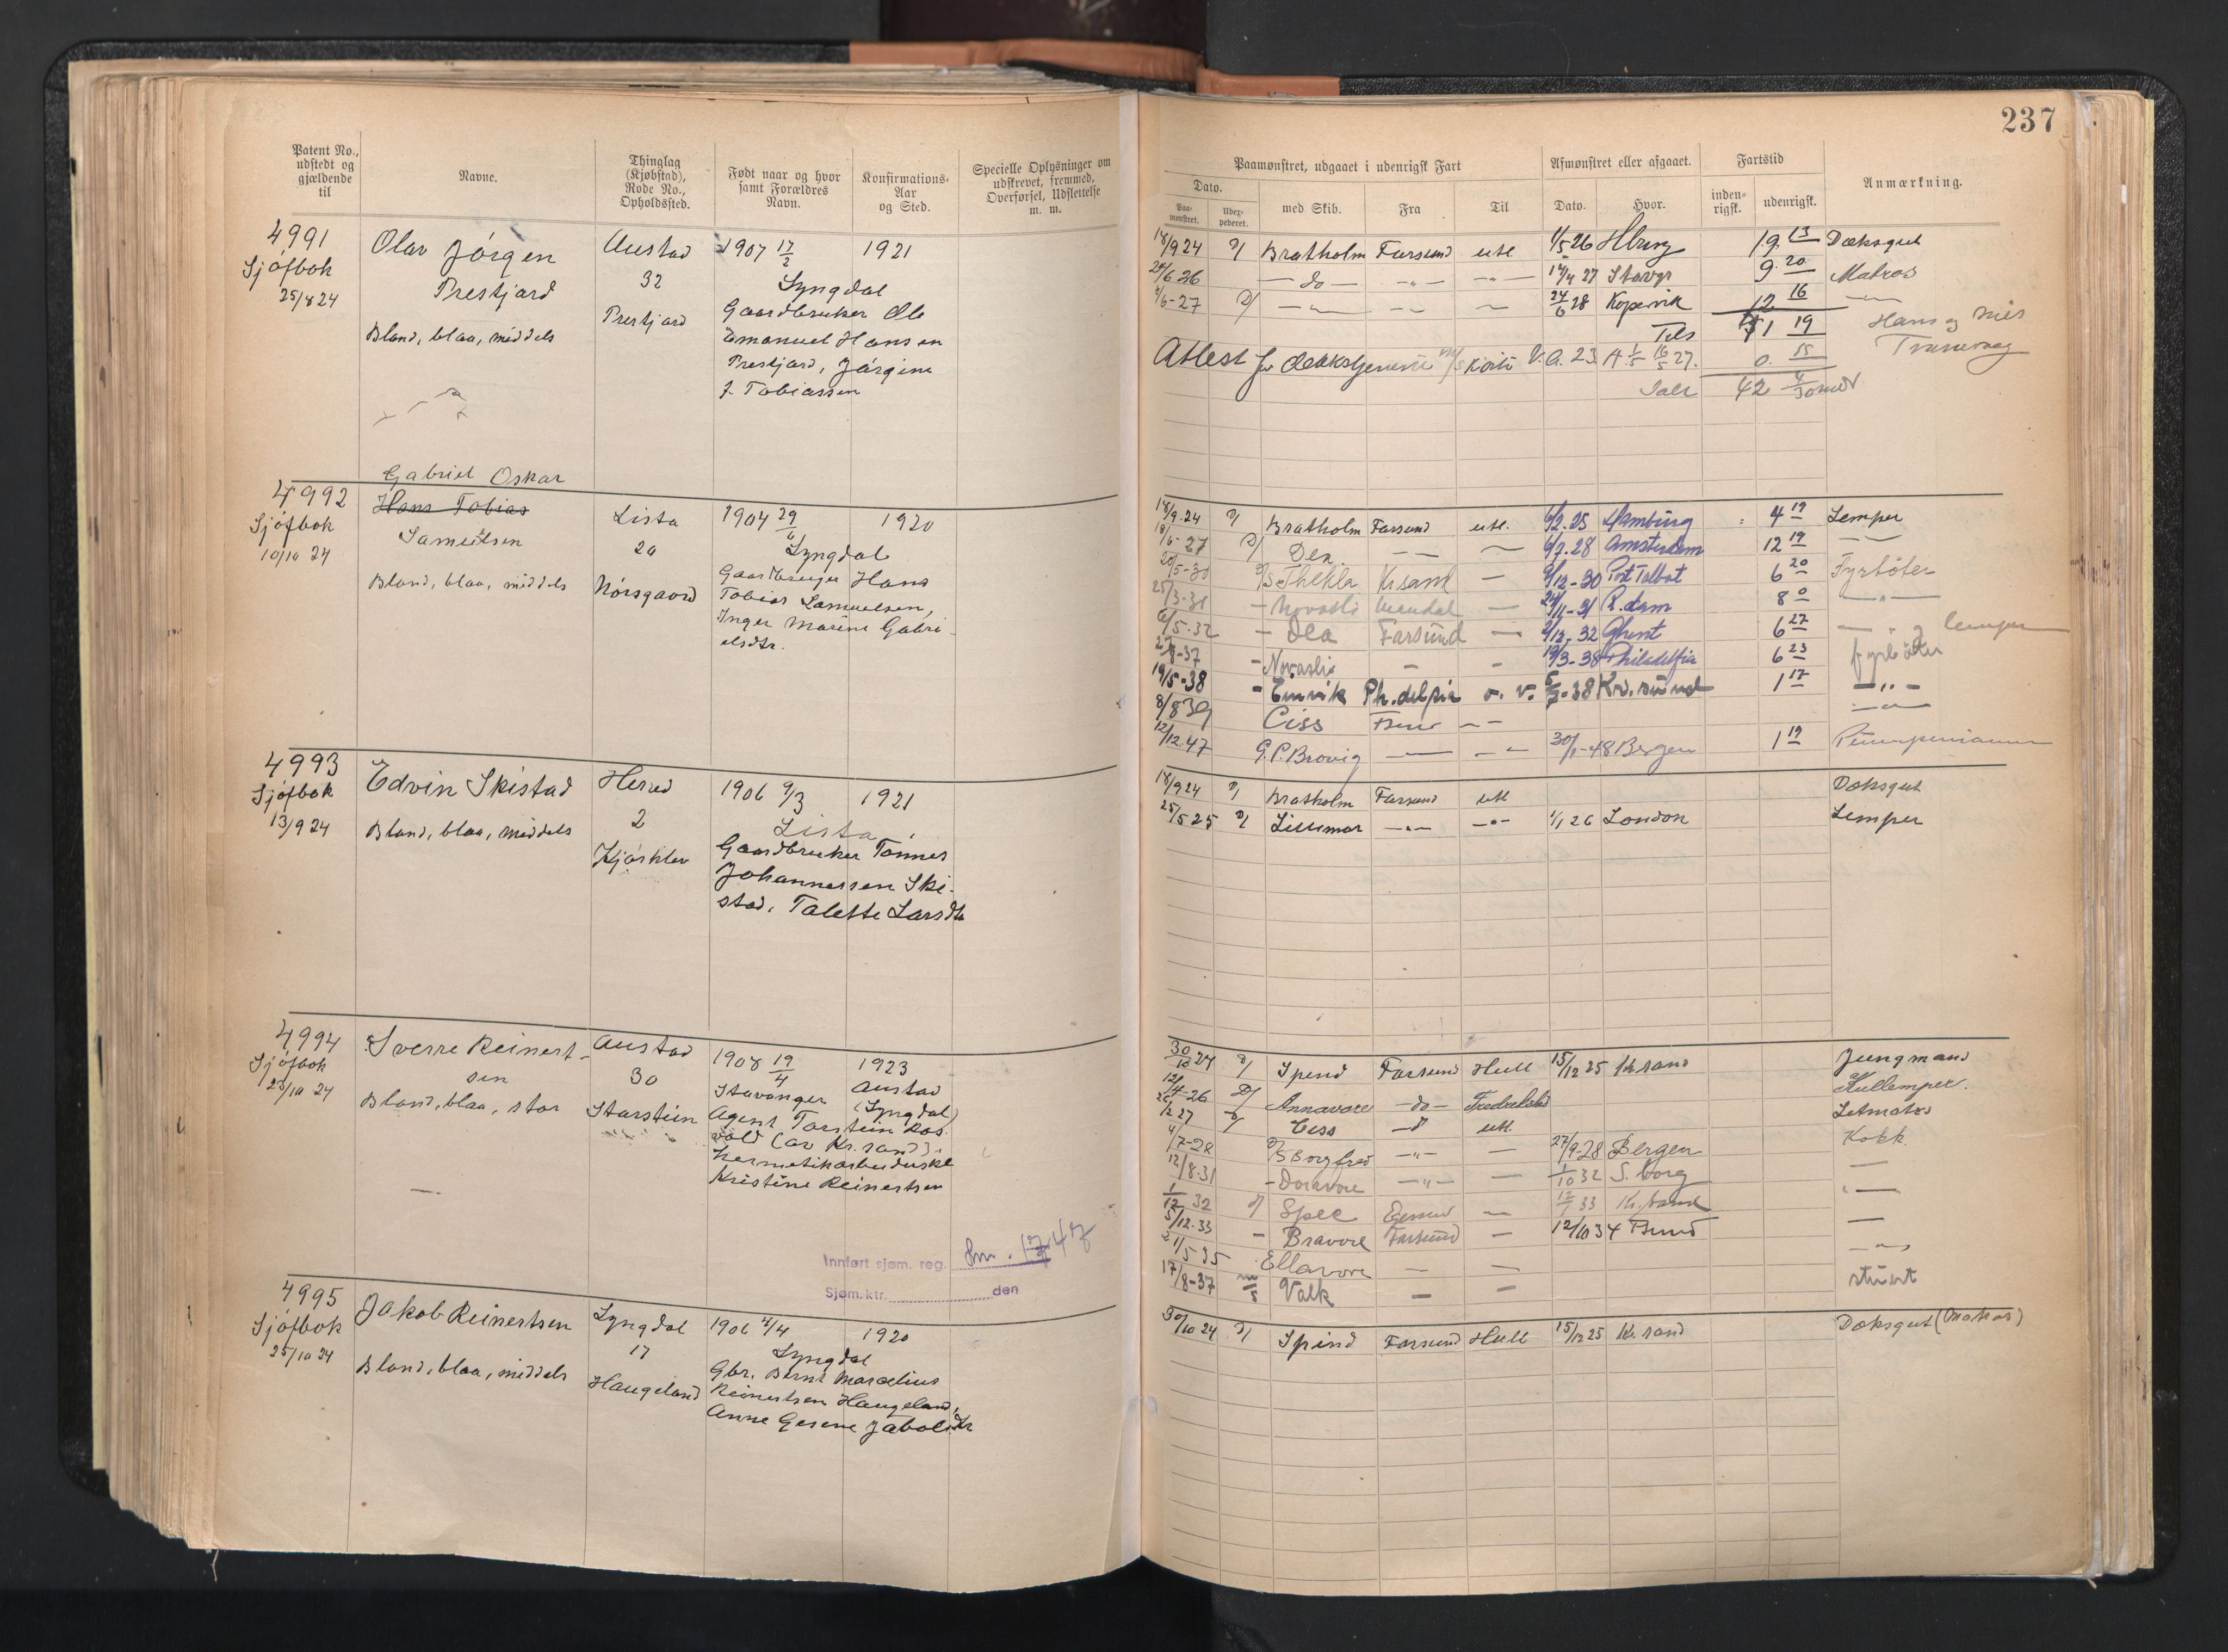 237
Patent No., udstedt og gjældende til
Navne.
Thinglag (Kjøbstad), Rode No., Opholdssted.
Født naar og hvor samt Forældres Navn.
Konfirmations-Aar og Sted.
Specielle Oplysninger om udskrevet, fremmed, Overførsel, Udslettelse m. m.
4991
Sjøfbok
25/8 24
Olav Jørgen
Prestjard
Blond, blaa, middels
Austad
32
Prestjard
1907 17/2
Lyngdal
Gaardbruker Ole
Emanuel Hansen
Prestjard, Jørgine
J. Tobiassen
1921
4992
Sjøfbok
10/10 24
Gabriel Oskar
Hans Tobias
Samuelsen
Blond, blaa, middels
Lista
20
Nørsgaard
1904 29/6
Lyngdal
Gaardbruger Hans
Tobias Samuelsen,
Inger Marine Gabri-
elsdtr.
1920
4993
Sjøfbok
13/9 24
Edvin Skistad
Blond, blaa, middels
Herred
2
Kjørklev
1906 9/3
Lista
Gaardbruker Tønnes
Johannessen Ski-
stad, Talette Larsdtr
1921
4994
Sjøfbok
25/10 24
Sverre Reinert-
sen
Blond, blaa, stor
Austad
30
Starstein
1908 19/4
Stavanger
Agent Torstein Ros-
vold (av Kr.sand),
hermetikarbeiderske
Kristine Reinertsen
1923
Austad
(Lyngdal)
Innført sjøm. reg.
47
Sjøm.ktr. den
4995
Sjøfbok
25/10 24
Jakob Reinertsen
Blond, blaa, middels
Lyngdal
17
Haugeland
1906 4/4
Lyngdal
Gbr. Bernt Marcelius
Reinertsen Haugeland,
Anne Gesene Jakobsdtr
1920
Paamønstret, udgaaet i udenrigsk Fart
Afmønstret eller afgaaet.
Fartstid
Anmærkning.
Dato.
Paa-mønstret.
Uder-pederet.
med Skib.
Fra
Til
Dato.
Hvor.
inden-rigsk.
udenrigsk.
18/9 24 D/ Bratholm Farsund utl 1/5 26 Hburg 19 13 Dæksgut
25/6 26 — do — — " — 14/4 27 Stavgr 9 20 Matros
/6-27 D/ — " — — — 24/6 28 Kopervik 12 16 — " —
Tils 41 19
Attest for dækstjeneste 16/5 27. 0. 15
Ialt 42
18/9.24 D/ Bratholm Farsund utl. 6/2.25 Hamburg 4 19 Lemper
18/6-27 D/ Dea — — — 6/7.28 Amsterdam 12 19 — —
20/5-30 D/S Thekla Kr.sand — 9/12-30 Port Talbot 6 20 Fyrbøter
25/3-31 — Novasli Mandal — 24/11-31 R.dam 8 0 — " —
6/5-32 — Dea Farsund — 2/12-32 Ghent 6 27 — " — og lemper
27/8-37 — Novasli — — 19/3-38 Philadelfia 6 23 fyrbøter
19/5-38 — Einvik Ph.delfia o. v. 5/7-38 Kr.sund 1 17 — " —
8/8 39 Ciss Fsund — — — " —
12/12.47 G.P. Brovig — — — 30/1-48 Bergen 1 19 Pumpemann
18/9 24 D/ Bratholm Farsund utl Dæksgut
25/5 25 D/ Lillemor — " — — " — 1/1 26 London Lemper
30/10 24 D/ Spind Farsund Hull 15/12 25 Kr.sand Jungmand
12/4-26 D/ Annavore — do — Fredrikstad Kullemper.
26/2 27 D/ Ciss — d utl. Letmatros
4/7-28 D/S Borgfred — " — — 27/9-28 Bergen Kokk
12/8.31 — Doravore — " — — 1/10 32 S. borg —
1/12 32 D/ Spec — 12/7 33 Kr.sand — " —
5/12.33 — Bravore Farsund — 12/10 34 Fsund —
21/5-35 Ellavore — — — " —
17/8-37 m/s Valk — — stuert
30/10 24 D/ Spind Farsund Hull 15/12 25 Kr.sand Dæksgut (Matros)